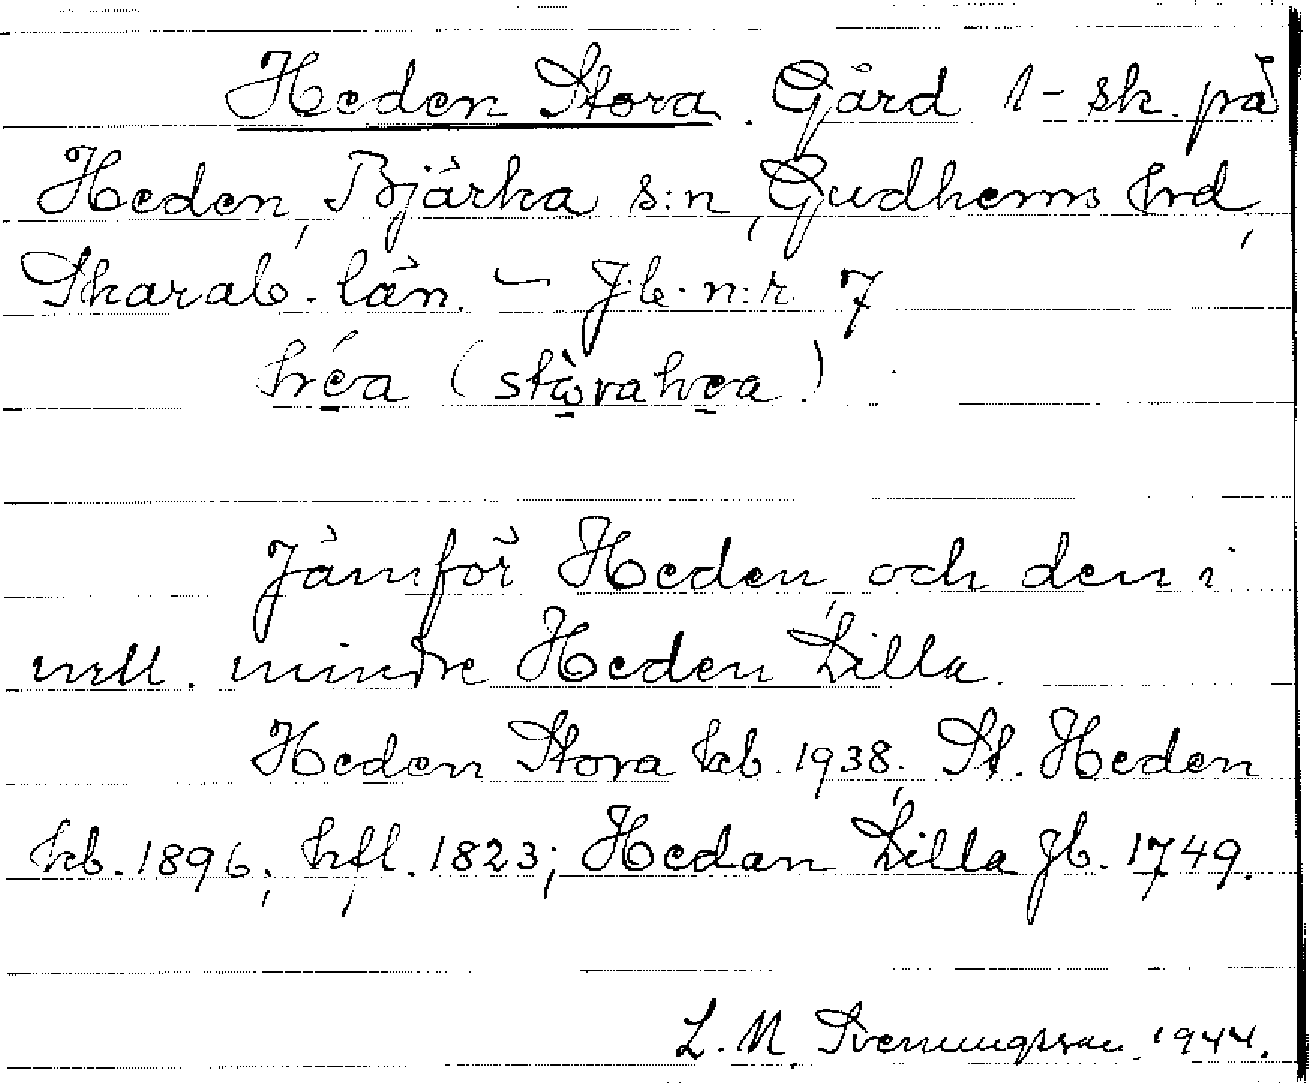 Heden Stora. Gård 1 - sk. på
Heden, Bjärka s:n, Gudhems hrd,
Skarab. län. - J:b. n:r. 7
hèa (stòrahea).
Jämför Heden, och den i
mtl. mindre Heden Lilla.
Heden Stora kb. 1938; St. Heden
kb. 1896, hfl. 1823; Hedan Lilla jb. 1749.
L. M. Svenungsson 1944.